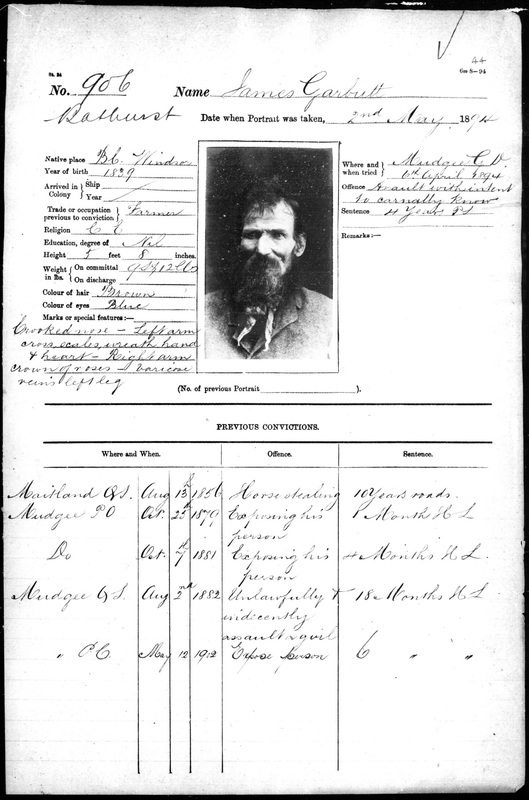 44
6a 8-94
No. 906 Name James Garbutt
Bathurst Date when Portrait was taken, 2nd May 1894
Native place Bc. Windsor
Year of birth 1839
Arrived in Colony Ship
Year
Trade or occupation previous to conviction Farmer
Religion C E
Education, degree of Nil
Height 5 feet 8 inches.
Weight in lbs. On committal 9 St 12 lbs
On discharge
Colour of hair Brown
Colour of eyes Blue
Marks or special features:—
Crooked nose – Left arm
cross, scales, wreath, hand
& heart – Right arm
crown of roses – varicose
veins left leg
Where and when tried Mudgee C.D.
April 1894
Offence Assault with intent
to carnally know
Sentence 4 Years PS
Remarks:—
(No. of previous Portrait ).
PREVIOUS CONVICTIONS.
Where and When. Offence. Sentence.
Maitland QS. Aug 13th 1856 Horse stealing 10 Years roads.
Mudgee PO Oct. 25th 1879 Exposing his person 1 Month HL
Do Oct. 7th 1881 Exposing his person 4 Months HL.
Mudgee QS Aug 2nd 1882 Unlawfully &
indecently
assault a girl 18 Months HL
" P.C. May 12 1902 Expose person 6 " "